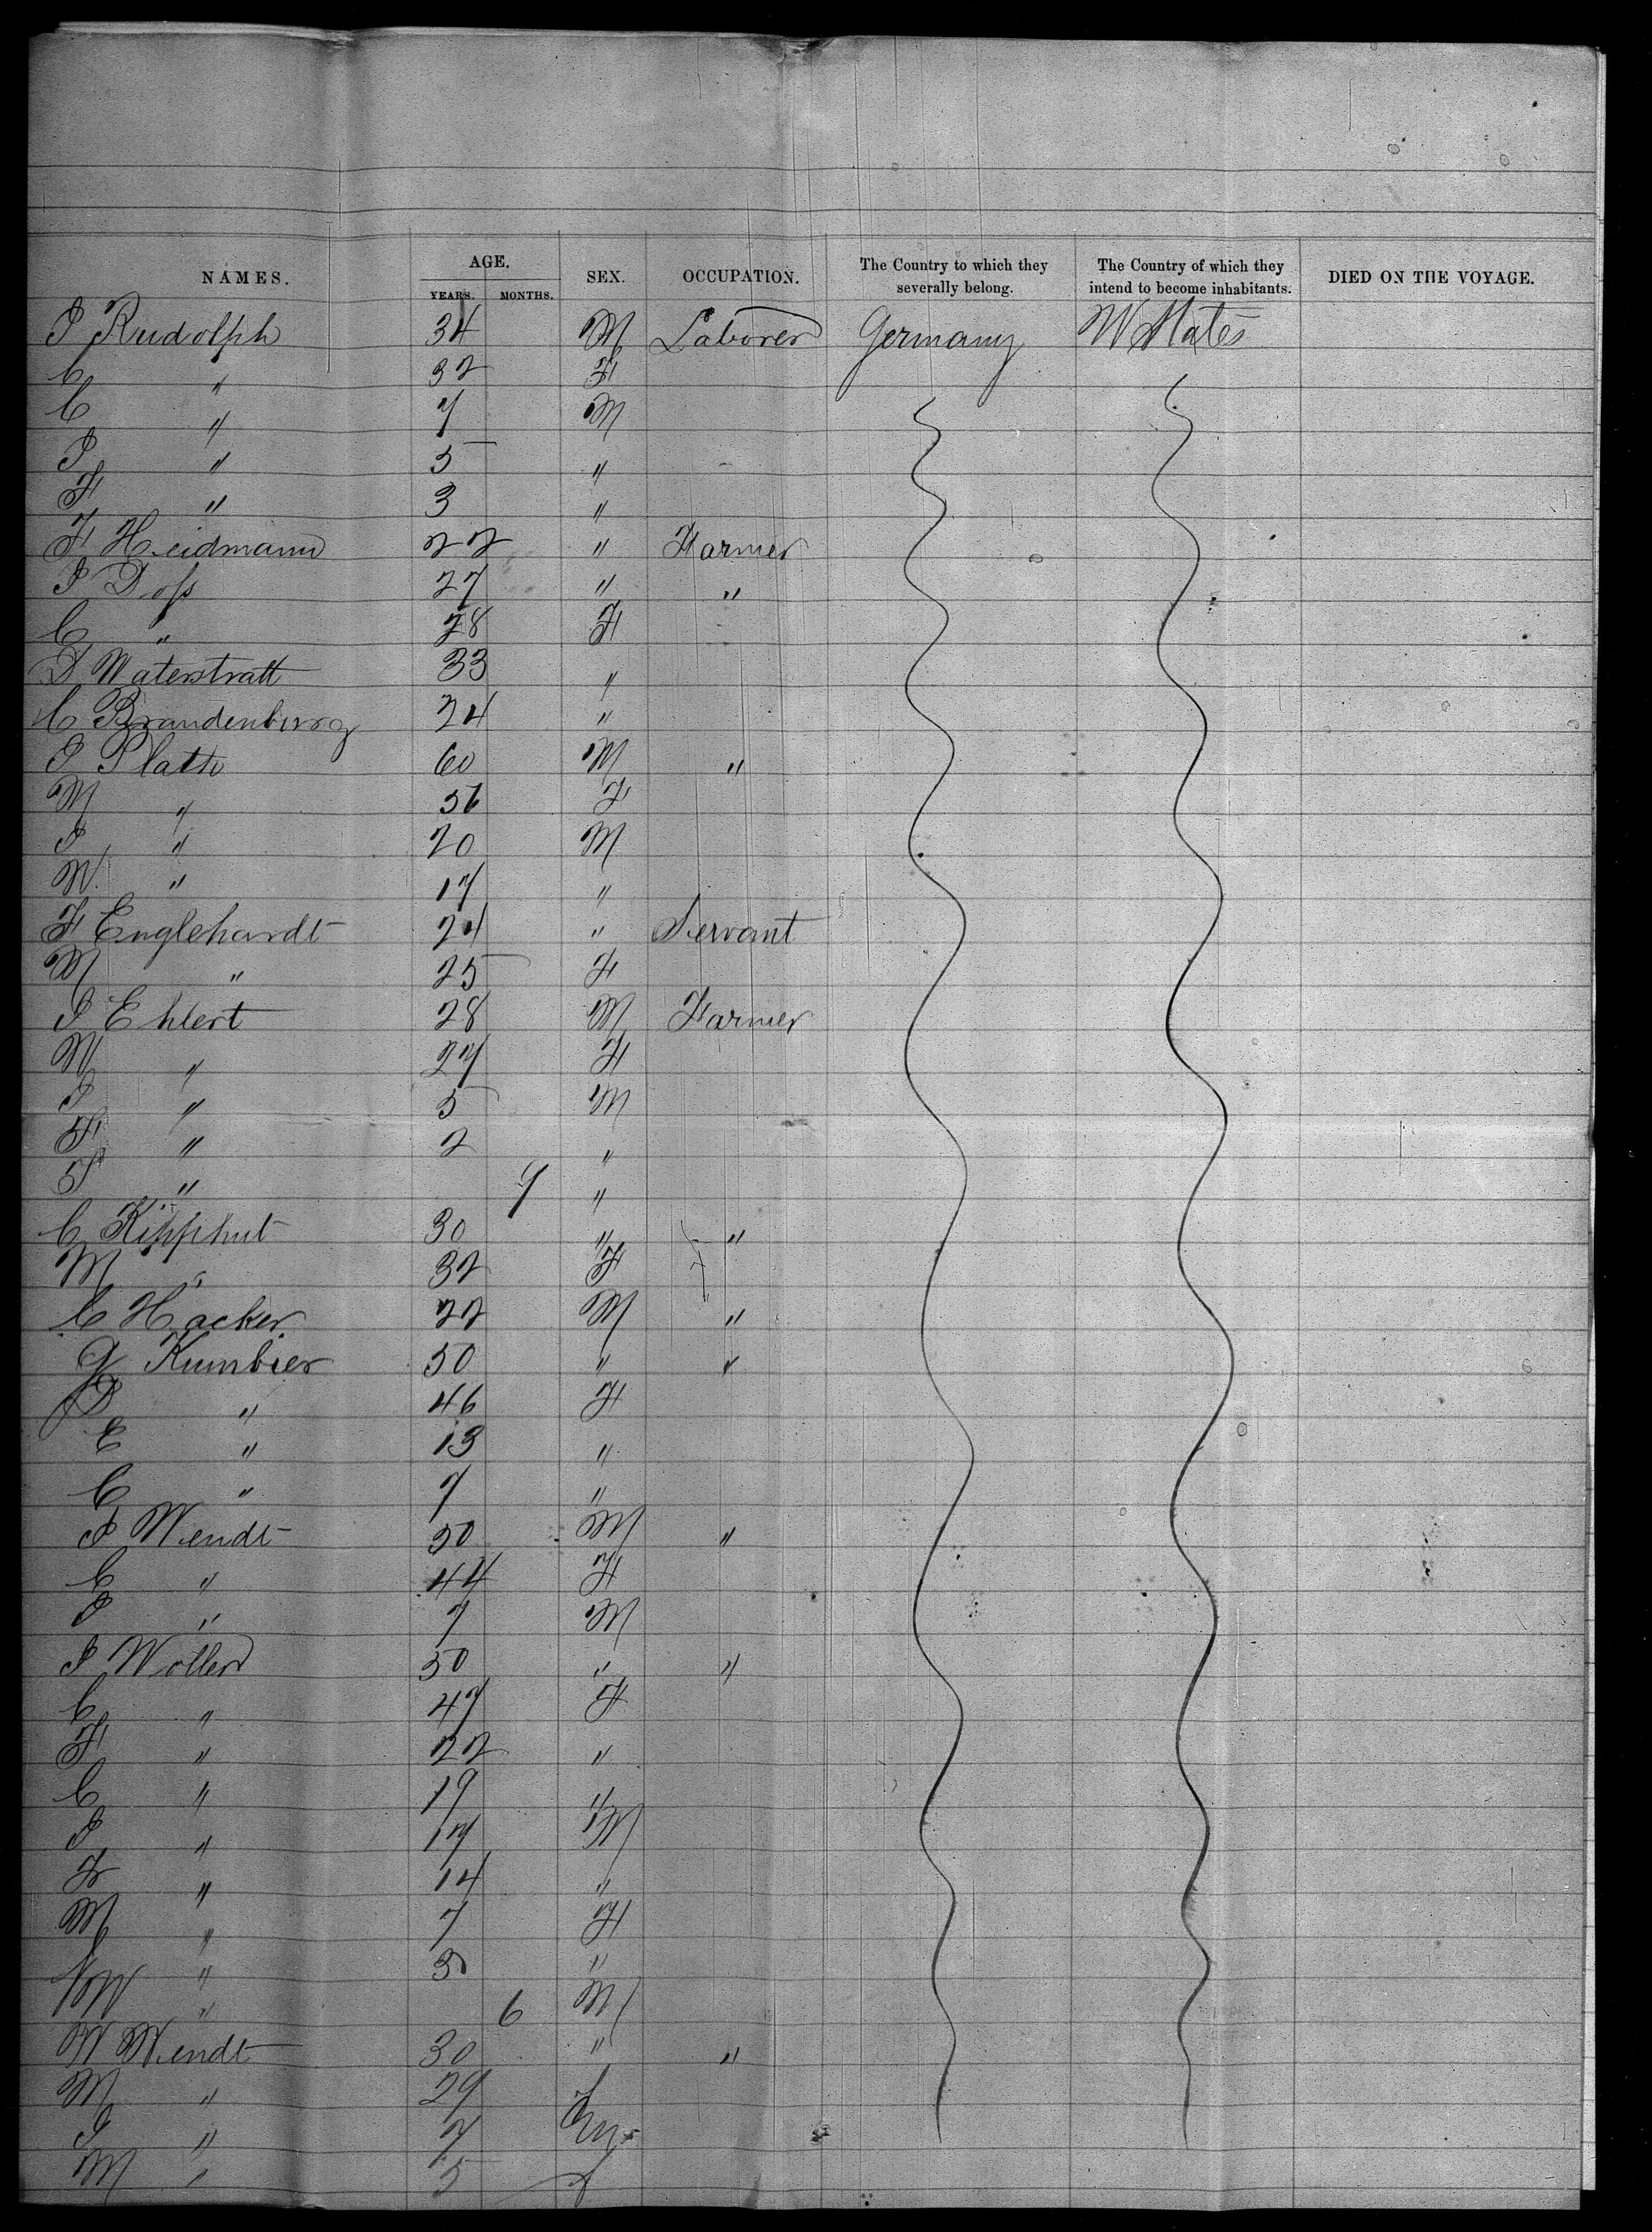 NAMES. AGE. YEARS. MONTHS. SEX. OCCUPATION. The Country to which they severally belong. The Country of which they intend to become inhabitants. DIED ON THE VOYAGE.
J Rudolph 34 M Laborer Germany U States
C " 32 F
C " 7 M
J " 5 "
F " 3 "
F Heidmann 22 " Farmer
J Doss 27 " "
C " 28 F
D Waterstratt 33 "
C Brandenburg 24 "
J Plath 60 M "
M " 56 F
J " 20 M
W " 17 "
F Englehardt 24 " Servant
M " 25 F
J Ehlert 28 M Farmer
W " 27 F
J " 5 M
F " 2 "
" 9 "
C Kipphut 30 " "
M " 32 F
C Hacker 22 M "
G Kumbier 50 " "
D " 46 F
E " 13 "
C " 7 "
J Wendt 50 M "
C " 44 F
J " 7 M
J Wollen 50 " "
C " 47 F
F " 22 "
C " 19 "
J " 17 M
Fr " 14 "
M " 7 F
" 3 "
W " 6 M
W Wendt 30 " "
M " 29 F
J " 7 m
M " 5 f